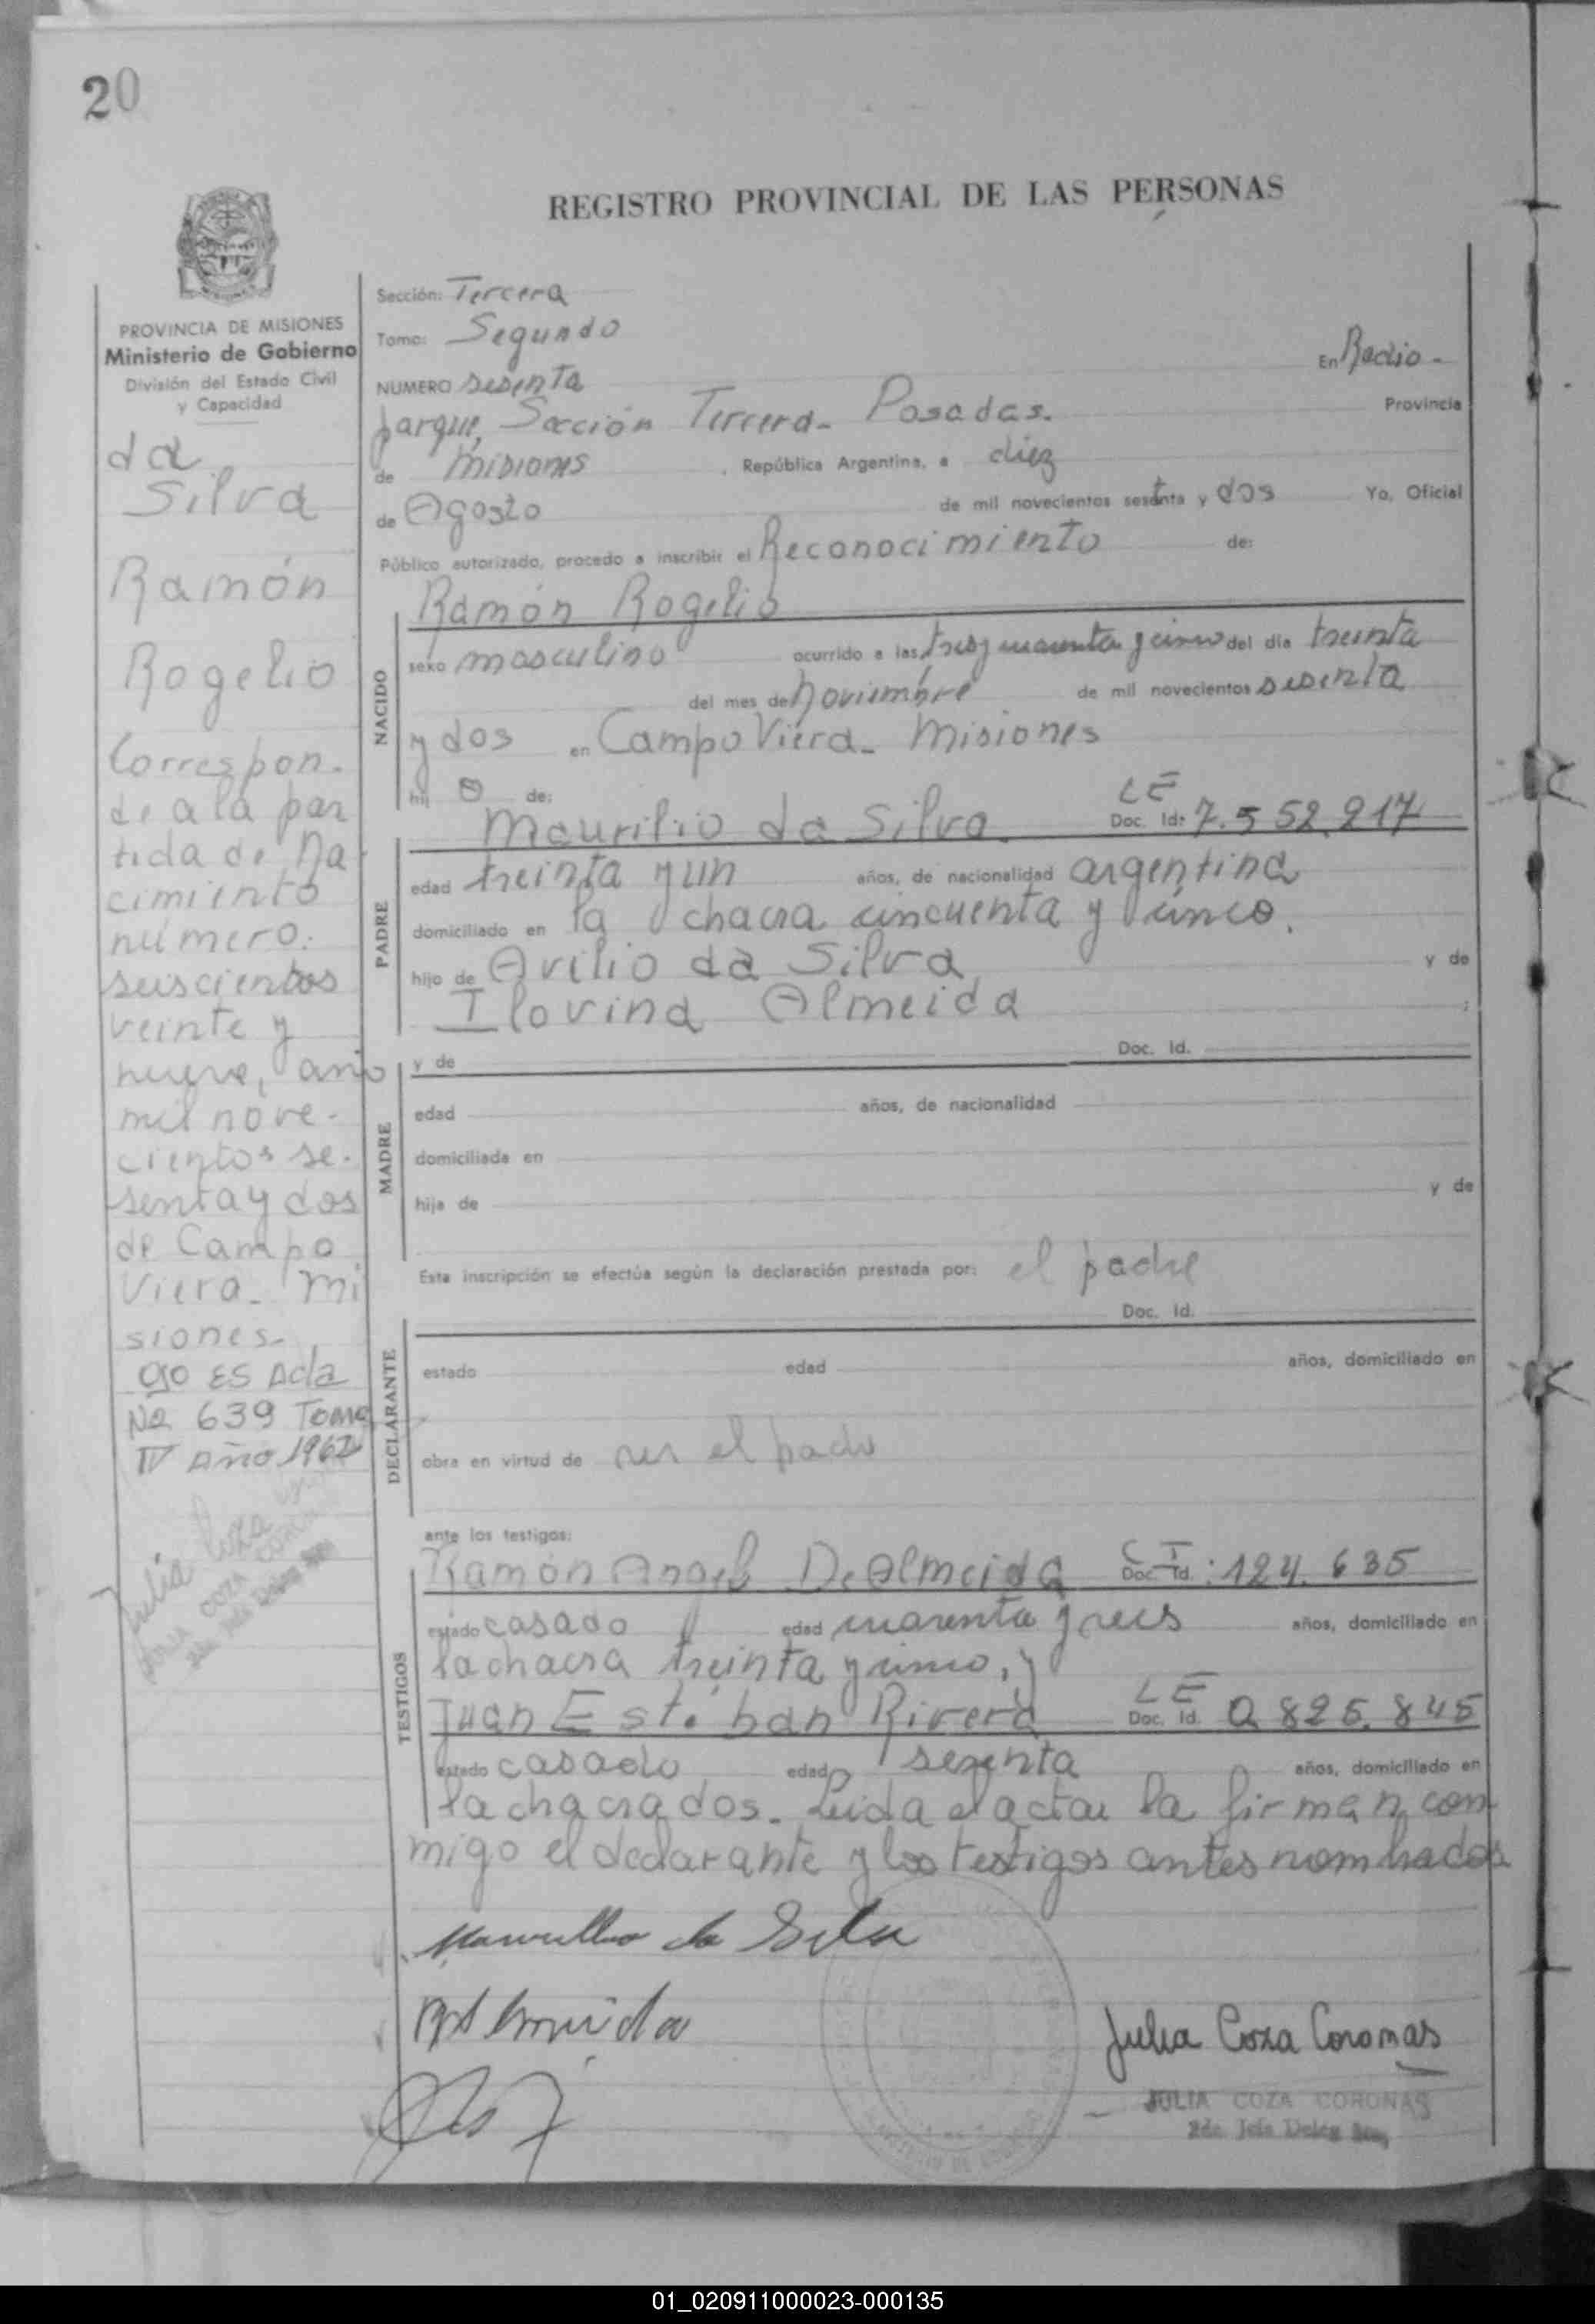 20
REGISTRO PROVINCIAL DE LAS PERSONAS
PROVINCIA DE MISIONES
Ministerio de Gobierno
División del Estado Civil
y Capacidad
da
Silva
Ramón
Rogelio
Correspon-
de a la par
tida de Na
cimiento
número.
seiscientos
veinte y
nueve, año
mil nove-
cientos se-
senta y dos
de Campo
Viera_ Mi
siones_
ES Acta
No 639 Tomo
IV Año 1962
Julia Coza
Sección: Tercera
Tomo: Segundo
NUMERO sesenta En Radio -
parque, Sección Tercera_ Posadas. Provincia
de Misiones , República Argentina, a diez
de Agosto de mil novecientos sesenta y dos Yo, Oficial
Público autorizado, procedo a inscribir el Reconocimiento de:
Ramón Rogelio
NACIDO
sexo masculino ocurrido a las tres y cuarenta y cinco del día treinta
del mes de Noviembre de mil novecientos sesenta
y dos en Campo Viera_ Misiones
hij o de:
Maurilio da Silva LE Doc. Id: 7.552.217
PADRE
edad treinta y un años, de nacionalidad argentina
domiciliado en la chacra cincuenta y cinco.
hijo de Avilio da Silva y de
Ilovina Almeida ;
MADRE
y de Doc. Id.
edad años, de nacionalidad
domiciliada en
hija de y de
Esta inscripción se efectúa según la declaración prestada por: el padre
Doc. Id.
DECLARANTE
estado edad años, domiciliado en
obra en virtud de ser el padre
ante los testigos:
Ramón Angel De Almeida C I Doc. Id.: 124.635
TESTIGOS
estado casado edad cuarenta y seis años, domiciliado en
la chacra treinta y cinco, y
Juan Esteban Rivera LE Doc. Id. 0.825.845
estado casado edad sesenta años, domiciliado en
la chacra dos_ Leida el acta la firman con
migo el declarante y los testigos antes nombrados
Maurilio da Silva
Julia Coza Coronas
JULIA COZA CORONAS
01_020911000023-000135